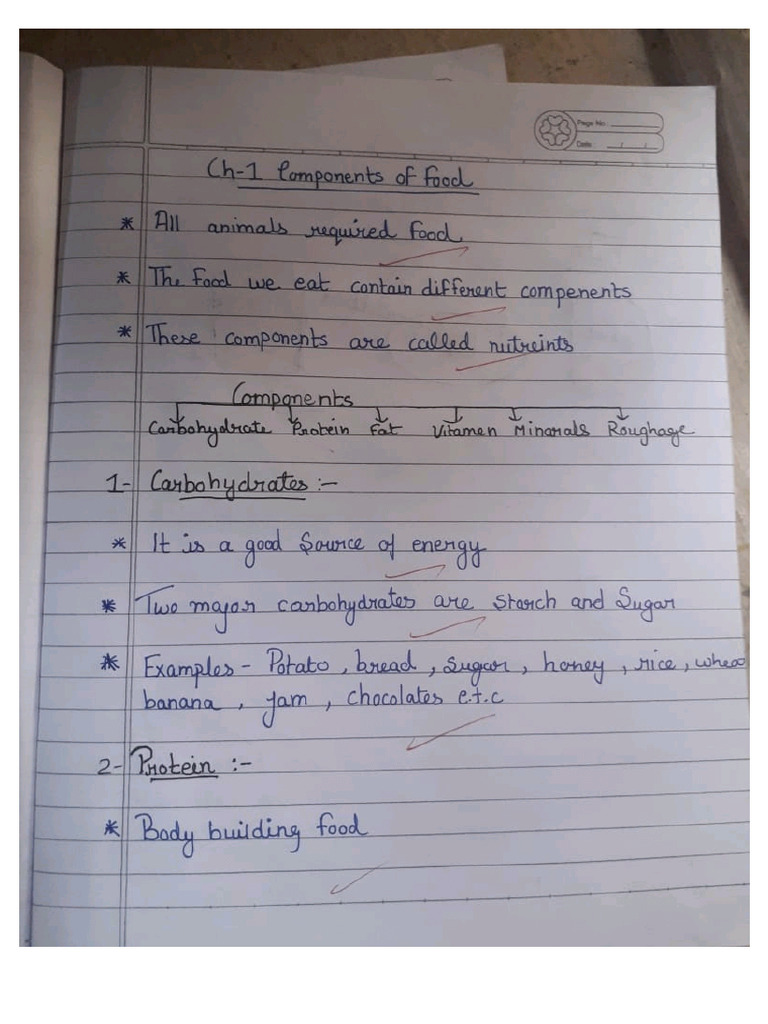 Page No.:
Date: / /
Ch-1 Components of food
* All animals required food.
* The food we eat contain different compenents
* These components are called nutreints
Components
Carbohydrate Protein Fat Vitamen Minarals Roughage
1- Carbohydrates :-
* It is a good source of energy
* Two major carbohydrates are starch and Sugar
* Examples - Potato , bread , sugar , honey , rice , wheat
banana , Jam , chocolates e.t.c
2- Protein :-
* Body building food